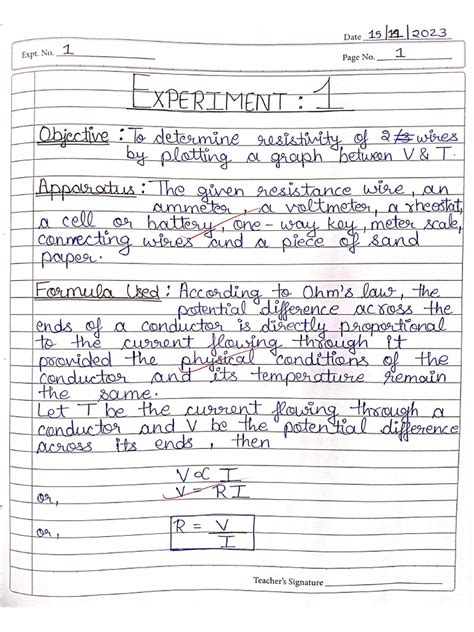 Date 15/11/2023
Expt. No. 1
Page No. 1
EXPERIMENT : 1
Objective : To determine resistivity of 2 wires
by plotting a graph between V & I.
Apparatus : The given resistance wire, an
ammeter, a voltmeter, a rheostat,
a cell or battery, one-way key, meter scale,
connecting wires and a piece of sand
paper.
Formula Used : According to Ohm's law, the
potential difference across the
ends of a conductor is directly proportional
to the current flowing through it
provided the physical conditions of the
conductor and its temperature remain
the same.
Let I be the current flowing through a
conductor and V be the potential difference
across its ends, then
V ∝ I
or, V = RI
or, R = V/I
Teacher's Signature